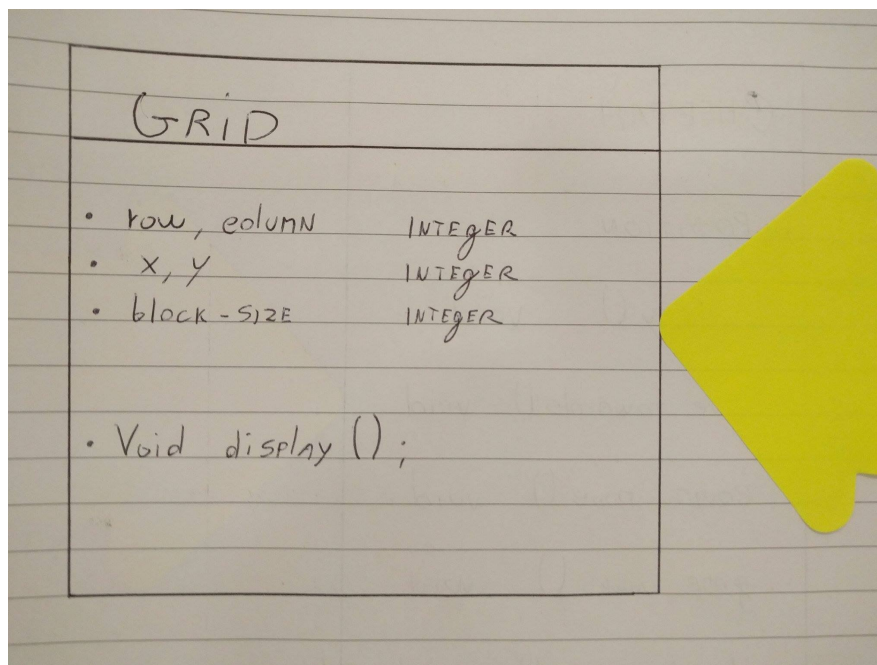 GRiD
• row, column INTEgER
• x, y INTEgER
• block-SIZE INTEgER
• Void display();